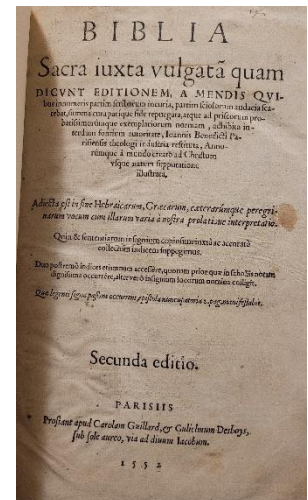 BIBLIA
Sacra iuxta vulgatā quam
DICVNT EDITIONEM, A MENDIS QVI-
bus innumeris partim scriptorum incuria, partim sciolorum audacia sca-
tebat, summa cura parique fide repurgata, atque ad priscorum pro-
batissimorumque exemplariorum normam, adhibita in-
terdum fontium autoritate, Ioannis Benedicti Pa-
risiensis theologi industria restituta, Annu-
rumque à mundo creato ad Christum
vsque natum supputatione
illustrata.
Adiecta est in fine Hebraicarum, Græcarum, cæterarúmque peregri-
narum vocum cum illarum varia à nostra prolatione interpretatio.
Quin & sententiarum insignium copiosam iuxtà ac accuratā
collectionem indicem suppegimus.
Duo postremò indices etiamnum accessêre, quorum prior quæ in scholiis notatu
dignissima occurrêre, alter verò insignium locorum nomina colligit.
Quæ legenti sequi possint occurrent, epistola nuncupatoria 2. pagina manifestabit.
Secunda editio.
PARISIIS
Prostant apud Carolam Guillard, & Gulielmum Desboys,
sub sole aureo, via ad diuum Iacobum.
1552